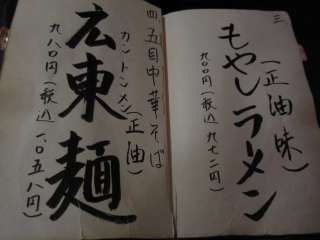 三
もやしラーメン
(正油味)
九〇〇円(税込 九七二円)
四
五目中華そば
カントンメン(正油)
広東麺
九八〇円(税込 一、〇五八円)